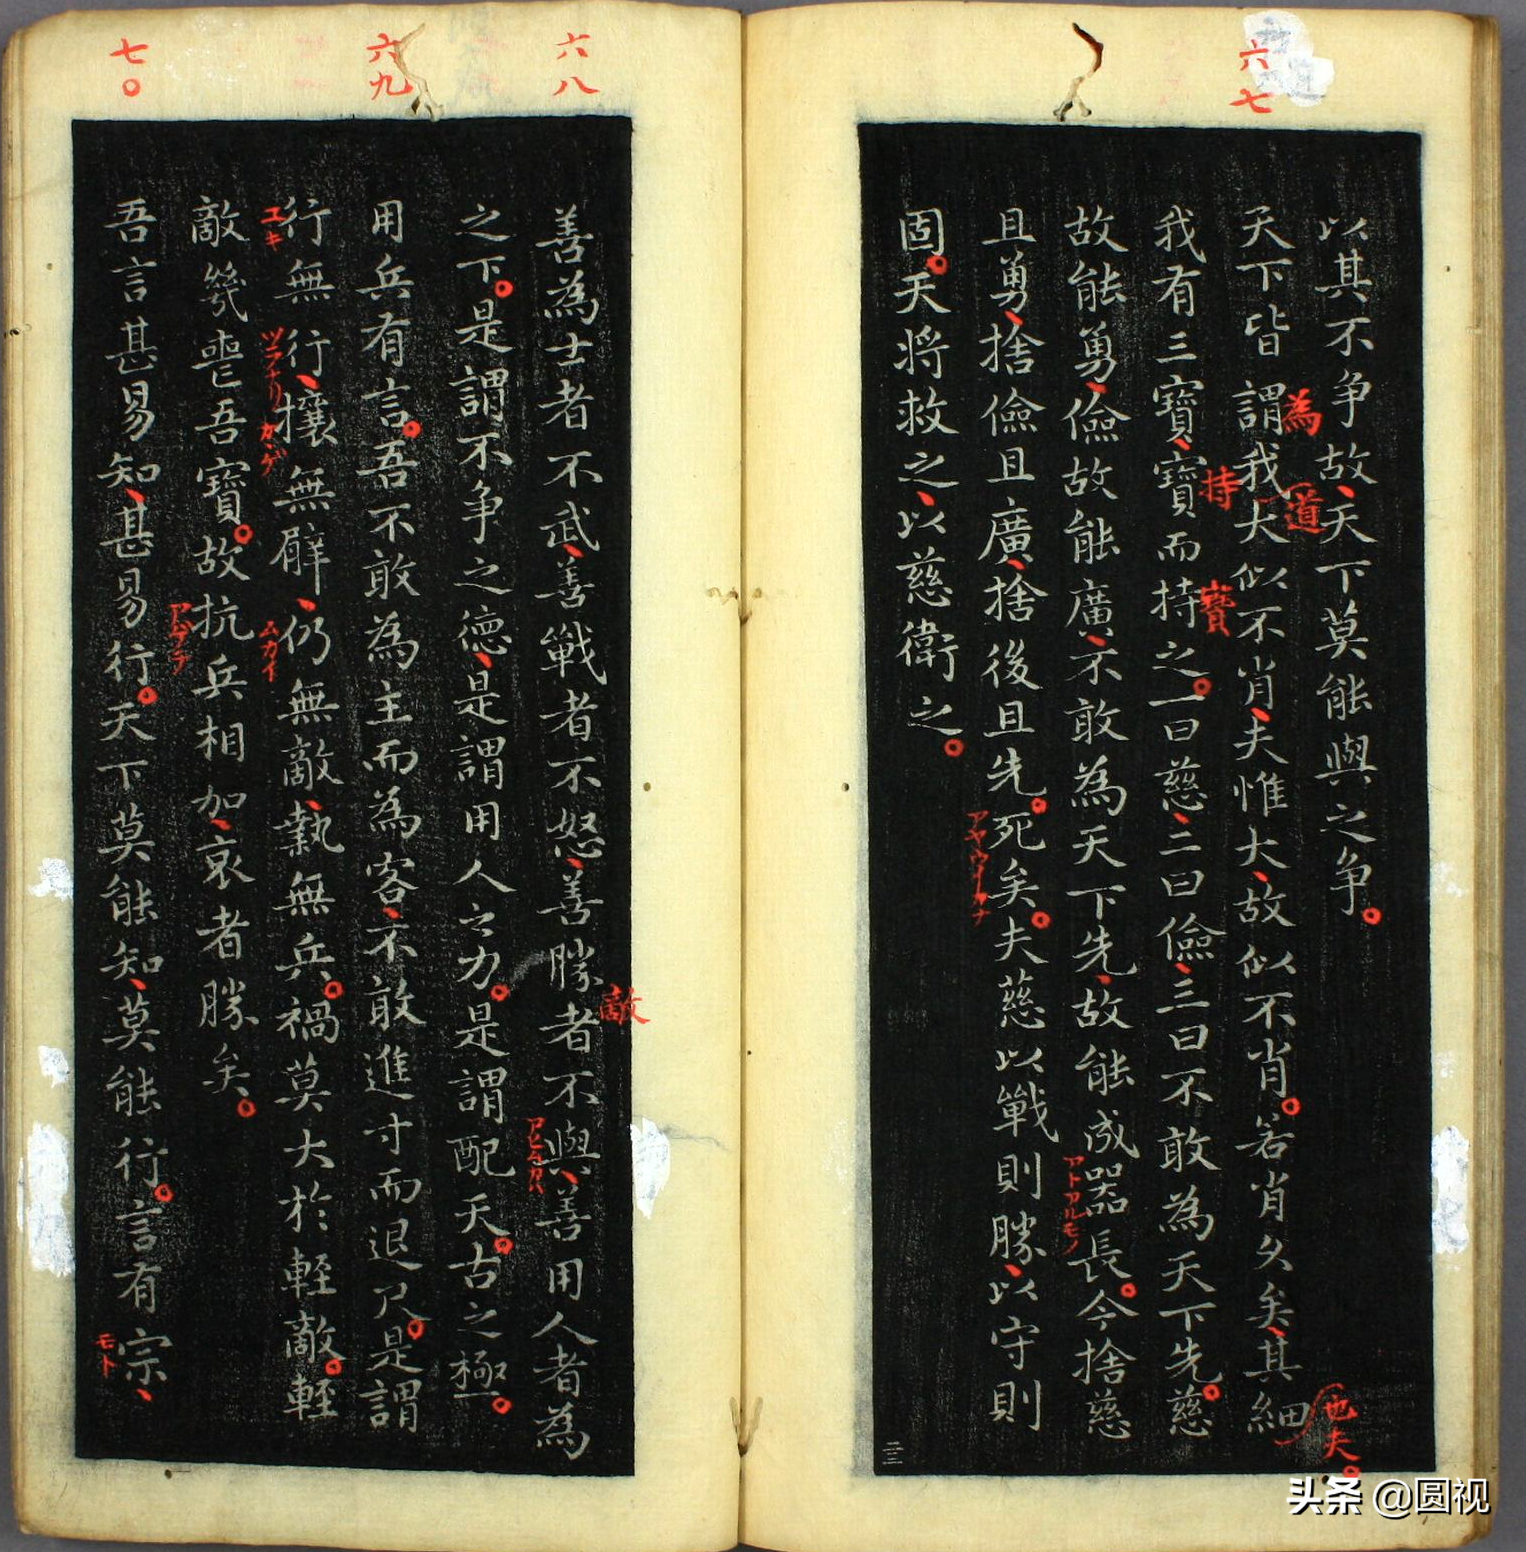 六七
以其不争故天下莫能與之争
天下皆謂我大似不肖夫惟大故似不肖若肖久矣其細
為
道
也夫
我有三寶寶而持之一曰慈二曰儉三曰不敢為天下先慈
持
寶
故能勇儉故能廣不敢為天下先故能成器長今捨慈
アトアルモノ
且勇捨儉且廣捨後且先死矣夫慈以戰則勝以守則
固天將救之以慈衛之
三三
六八
六九
七〇
善為士者不武善戰者不怒善勝者不與善用人者為
敵
之下是謂不争之德是謂用人之力是謂配天古之極
用兵有言吾不敢為主而為客不敢進寸而退尺是謂
行無行攘無臂仍無敵執無兵禍莫大於輕敵輕
ムカイ
敵幾喪吾寶故抗兵相加哀者勝矣
吾言甚易知甚易行天下莫能知莫能行言有宗
モト
头条 @圆视